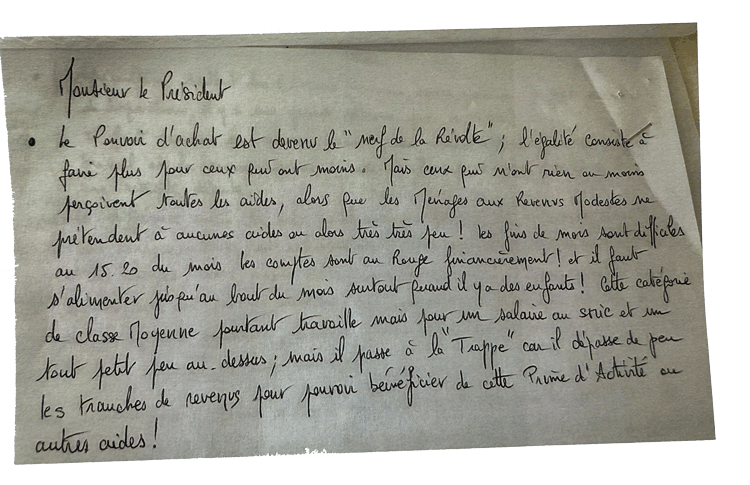 Monsieur le Président
• Le Pouvoir d'achat est devenu le "nerf de la Révolte" ; l'égalité consiste à
faire plus pour ceux qui ont moins. Mais ceux qui n'ont rien au moins
perçoivent toutes les aides, alors que les Ménages aux Revenus Modestes ne
prétendent à aucunes aides ou alors très très peu ! les fins de mois sont difficiles
au 15.20 du mois les comptes sont au Rouge financièrement ! et il faut
s'alimenter jusqu'au bout du mois surtout quand il y a des enfants ! Cette catégorie
de classe Moyenne pourtant travaille mais pour un salaire au smic et un
tout petit peu au-dessus ; mais il passe à la "Trappe" car il dépasse de peu
les tranches de revenus pour pouvoir bénéficier de cette Prime d'Activité ou
autres aides !